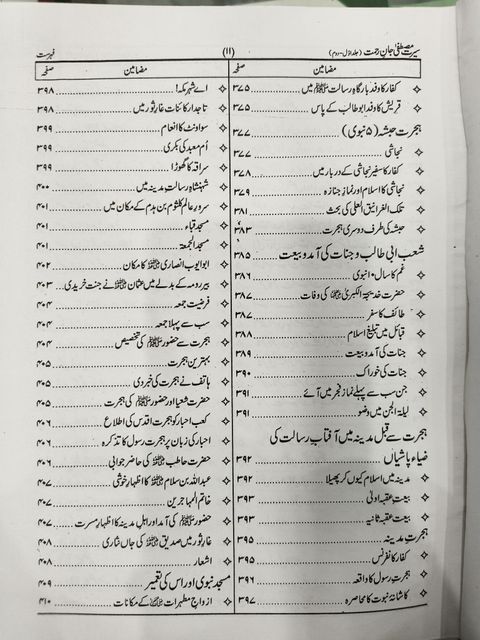 سیرت مصطفیٰ جان رحمت (جلد اوّل-دوم)
(۱۱)
فہرست
مضامین
صفحہ
کفار کا وفد بارگاہِ رسالت ﷺ میں ۳۷۵
قریش کا وفد ابو طالب کے پاس ۳۷۵
ہجرت حبشہ (۵ نبوی) ۳۷۷
نجاشی ۳۷۷
کفار کا سفیر نجاشی کے دربار میں ۳۷۸
نجاشی کا اسلام اور نماز جنازہ ۳۷۹
تلک الغرانیق العلی کی بحث ۳۸۱
حبشہ کی طرف دوسری ہجرت ۳۸۳
شعب ابی طالب و جنات کی آمد و بیعت ۳۸۵
غم کا سال ۱۰ نبوی ۳۸۶
حضرت خدیجۃ الکبریٰ کی وفات ۳۸۷
طائف کا سفر ۳۸۷
قبائل میں تبلیغ اسلام ۳۸۸
جنات کی آمد و بیعت ۳۸۹
جنات کی خوراک ۳۹۰
جن سب سے پہلے نماز فجر میں آئے ۳۹۱
لیلۃ الجن میں وضو ۳۹۱
ہجرت سے قبل مدینہ میں آفتابِ رسالت کی
ضیاء پاشیاں ۳۹۲
مدینہ میں اسلام کیوں کر پھیلا ۳۹۲
بیعت عقبہ اولیٰ ۳۹۳
بیعت عقبہ ثانیہ ۳۹۳
ہجرتِ مدینہ ۳۹۵
کفار کانفرنس ۳۹۵
ہجرتِ رسول کا واقعہ ۳۹۶
کاشانۂ نبوت کا محاصرہ ۳۹۷
مضامین
صفحہ
اے شہر مکہ! ۳۹۸
تاجدار کائنات غارِ ثور میں ۳۹۸
سو اونٹ کا انعام ۳۹۹
اُم معبد کی بکری ۳۹۹
سراقہ کا گھوڑا ۳۹۹
شہنشاہِ رسالت مدینہ میں ۴۰۰
سرورِ عالم کلثوم بن ہدم کے مکان میں ۴۰۱
مسجد قباء ۴۰۱
مسجد الجمعۃ ۴۰۱
ابو ایوب انصاری کا مکان ۴۰۲
بیر رومہ کے بدلے میں عثمان نے جنت خریدی ۴۰۳
فرضیت جمعہ ۴۰۴
سب سے پہلا جمعہ ۴۰۴
ہجرت سے حضور ﷺ کی تخصیص ۴۰۴
بہترین ہجرت ۴۰۵
ہاتف نے ہجرت کی خبر دی ۴۰۵
حضرت شعیا اور حضور ﷺ کی ہجرت ۴۰۵
کعب احبار کو ہجرت اقدس کی اطلاع ۴۰۶
احبار کی زبان پر ہجرت رسول کا تذکرہ ۴۰۶
حضرت حاطب کی حاضر جوابی ۴۰۶
عبداللہ بن سلام کا اظہار خوشی ۴۰۷
خاتم المہاجرین ۴۰۷
حضور ﷺ کی آمد اور اہل مدینہ کا اظہار مسرت ۴۰۷
غار ثور میں صدیق کی جاں نثاری ۴۰۸
اشعار ۴۰۸
مسجد نبوی اور اس کی تعمیر ۴۰۹
ازواج مطہرات کے مکانات ۴۱۰